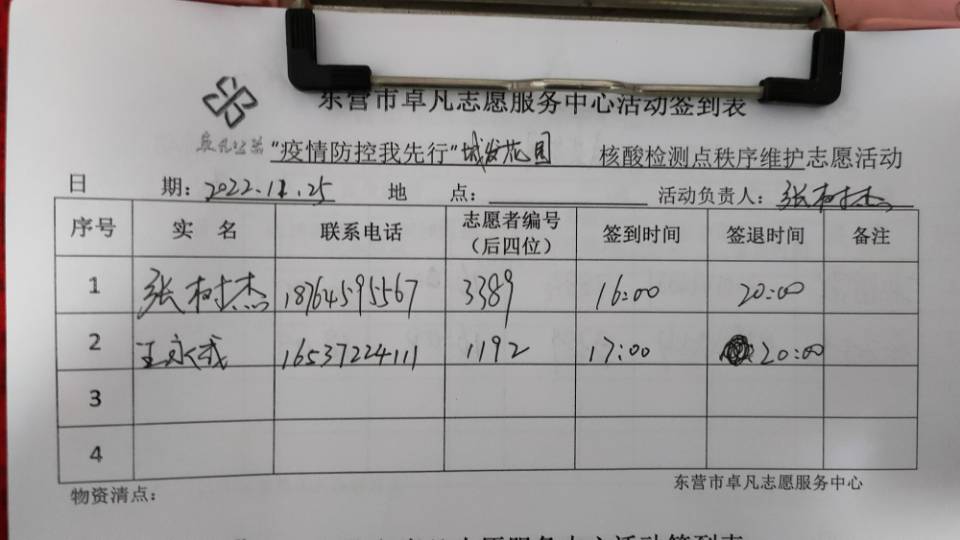 东营市卓凡志愿服务中心活动签到表
卓凡公益 "疫情防控我先行" 城发花园 核酸检测点秩序维护志愿活动
日 期：2022.11.25 地 点： 活动负责人：张树杰
序号 实 名 联系电话 志愿者编号（后四位） 签到时间 签退时间 备注
1 张树杰 18764595567 3389 16:00 20:00
2 王永成 16537224111 1192 17:00 20:00
3
4
物资清点： 东营市卓凡志愿服务中心